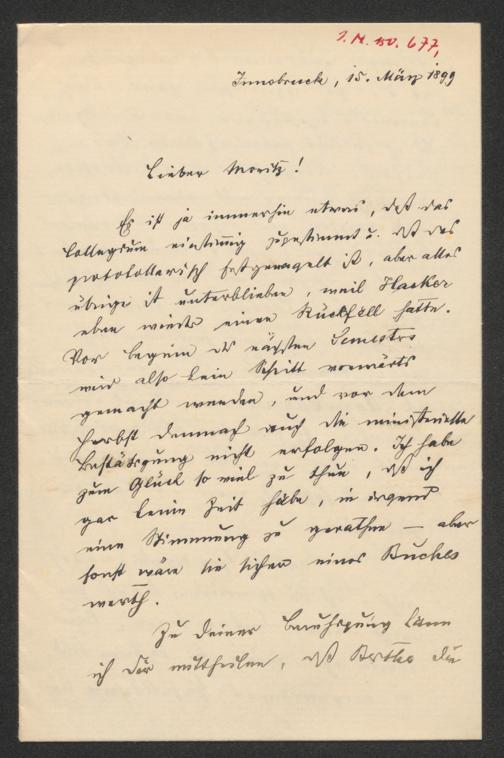 I. N. 150.677,
Innsbruck, 15. März 1899
Lieber Moritz!
Es ist ja immerhin etwas, daß das
Collegium einstimmig zugestimmt u. daß das
protokollarisch festgenagelt ist, aber alles
übrige ist unterblieben, weil Hacker
eben wieder einen Rückfall hatte.
Vor beginn des nächsten Semesters
wird also kein Schritt vorwärts
gemacht werden, und vor dem
Herbst demnach auch die ministerielle
Bestätigung nicht erfolgen. Ich habe
zum Glück so viel zu thun, daß ich
gar keine Zeit habe, in irgend
eine Stimmung zu gerathen — aber
sonst wäre sie sicher eines Buches
werth.
Zu deiner Beruhigung kann
ich dir mittheilen, daß Bertha die